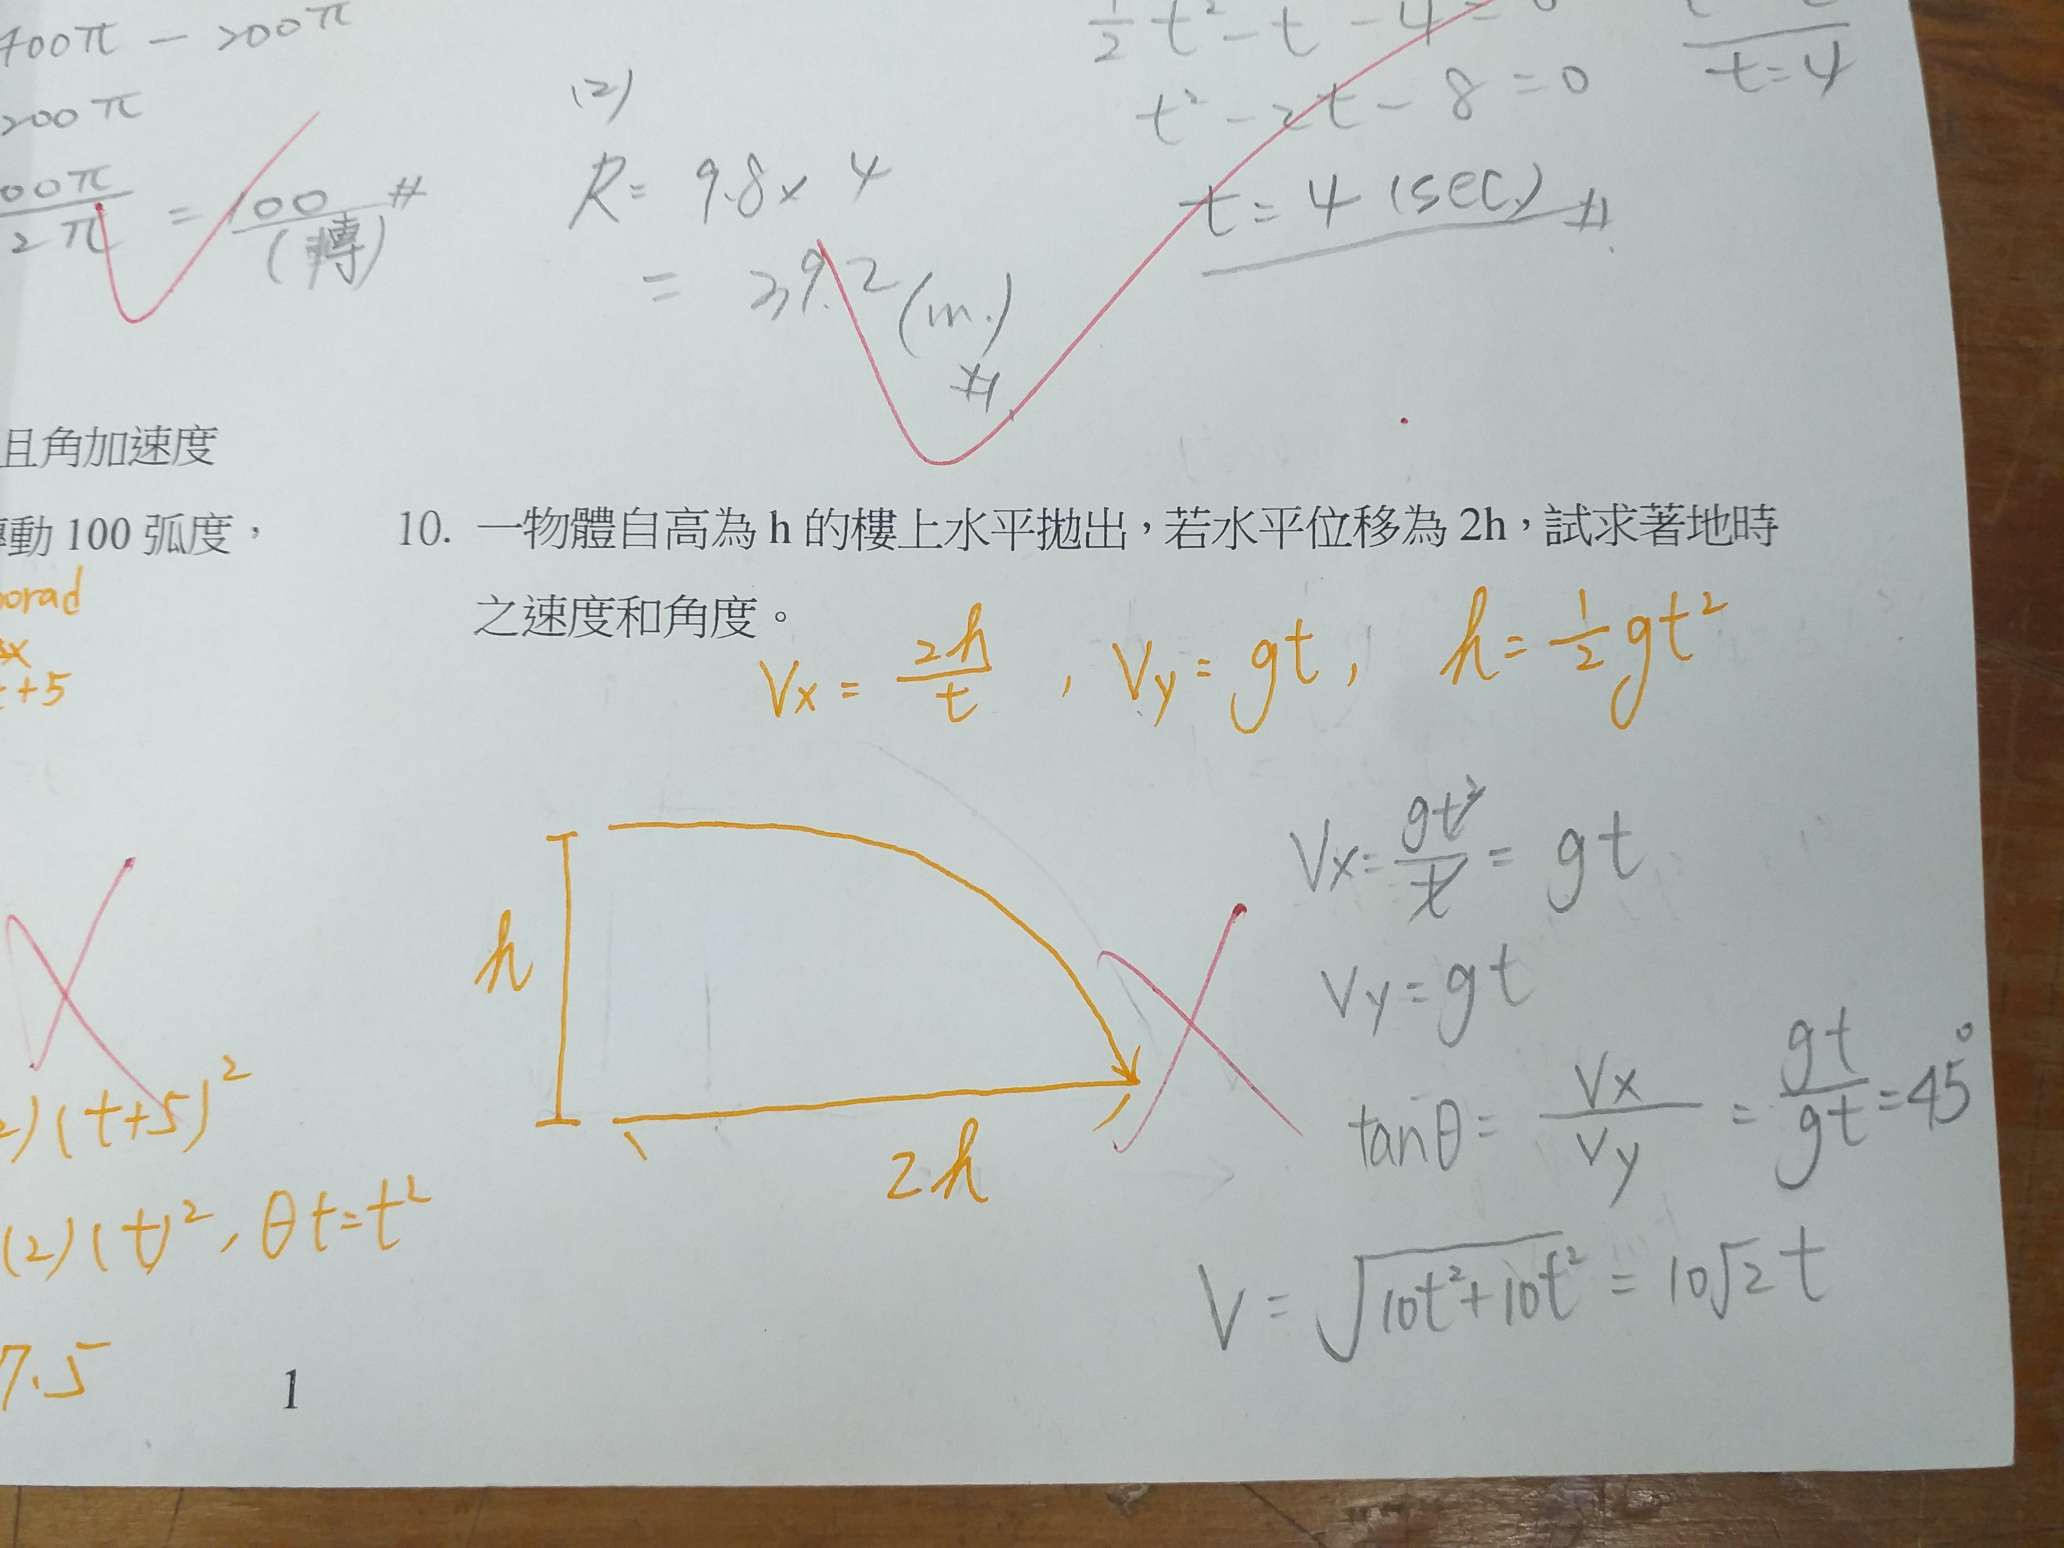 400π - 200π
200π
00π/2π = 100 (轉) #
(2)
R = 9.8 × 4
= 39.2 (m.) #
1/2 t² - t - 4 = 0
t² - 2t - 8 = 0
t = 4 (sec.) #
t = 4
且角加速度
動 100 弧度，
orad
t+5
(t+5)²
(2)(t)², θt=t²
7.5
10. 一物體自高為 h 的樓上水平拋出，若水平位移為 2h，試求著地時
之速度和角度。
Vx = 2h/t , Vy = gt, h = 1/2 gt²
h
2h
Vx = gt²/t = gt
Vy = gt
tanθ = Vx/Vy = gt/gt = 45°
V = √(10t²+10t²) = 10√2 t
1